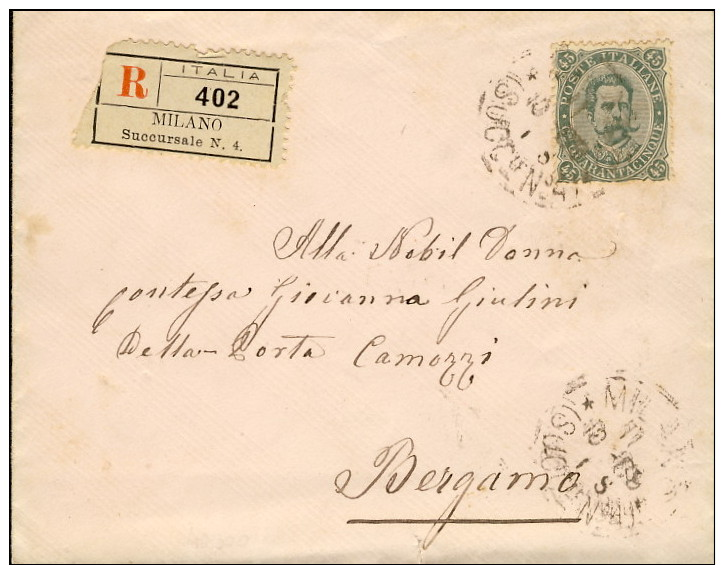 R
ITALIA
402
MILANO
Succursale N. 4.
45 POSTE ITALIANE 45
45 Cmi QUARANTACINQUE 45
Alla Nobil Donna
Contessa Giovanna Giulini
Della Porta Camozzi
Bergamo